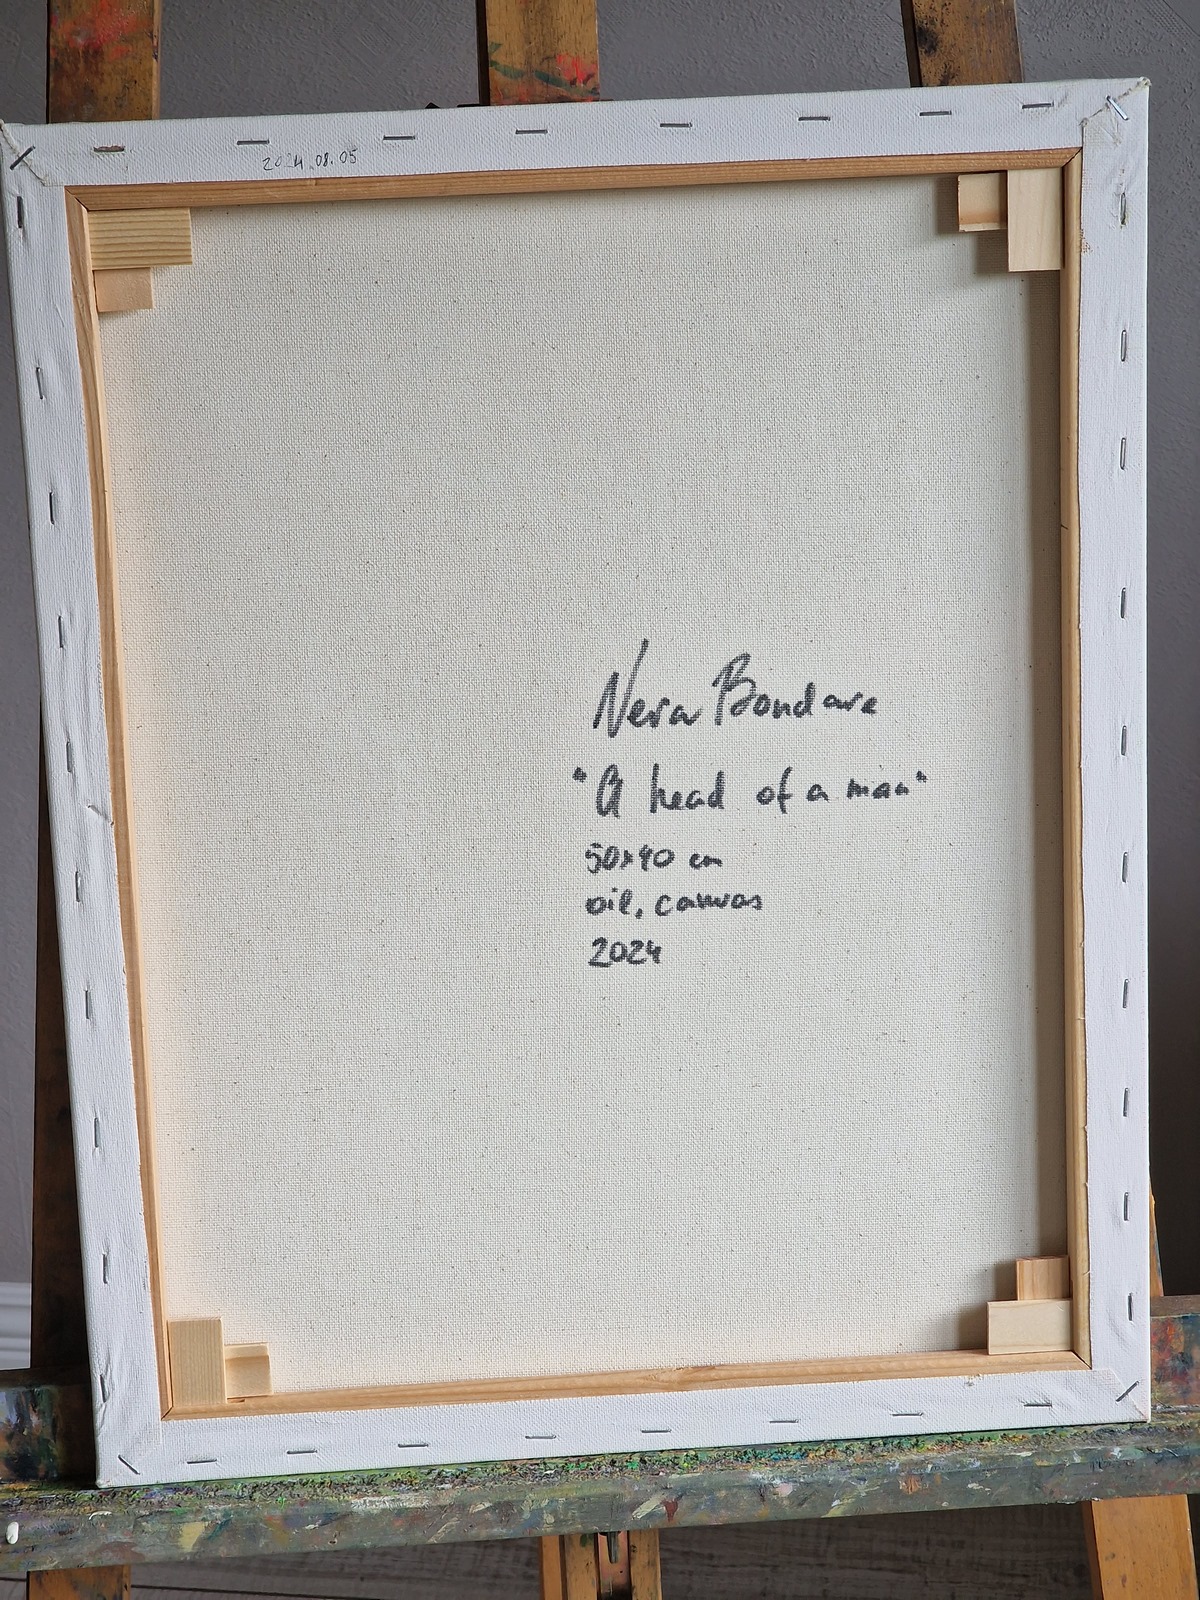 2024.08.05
Nera Bondare
"A head of a man"
50x40 cm
oil, canvas
2024